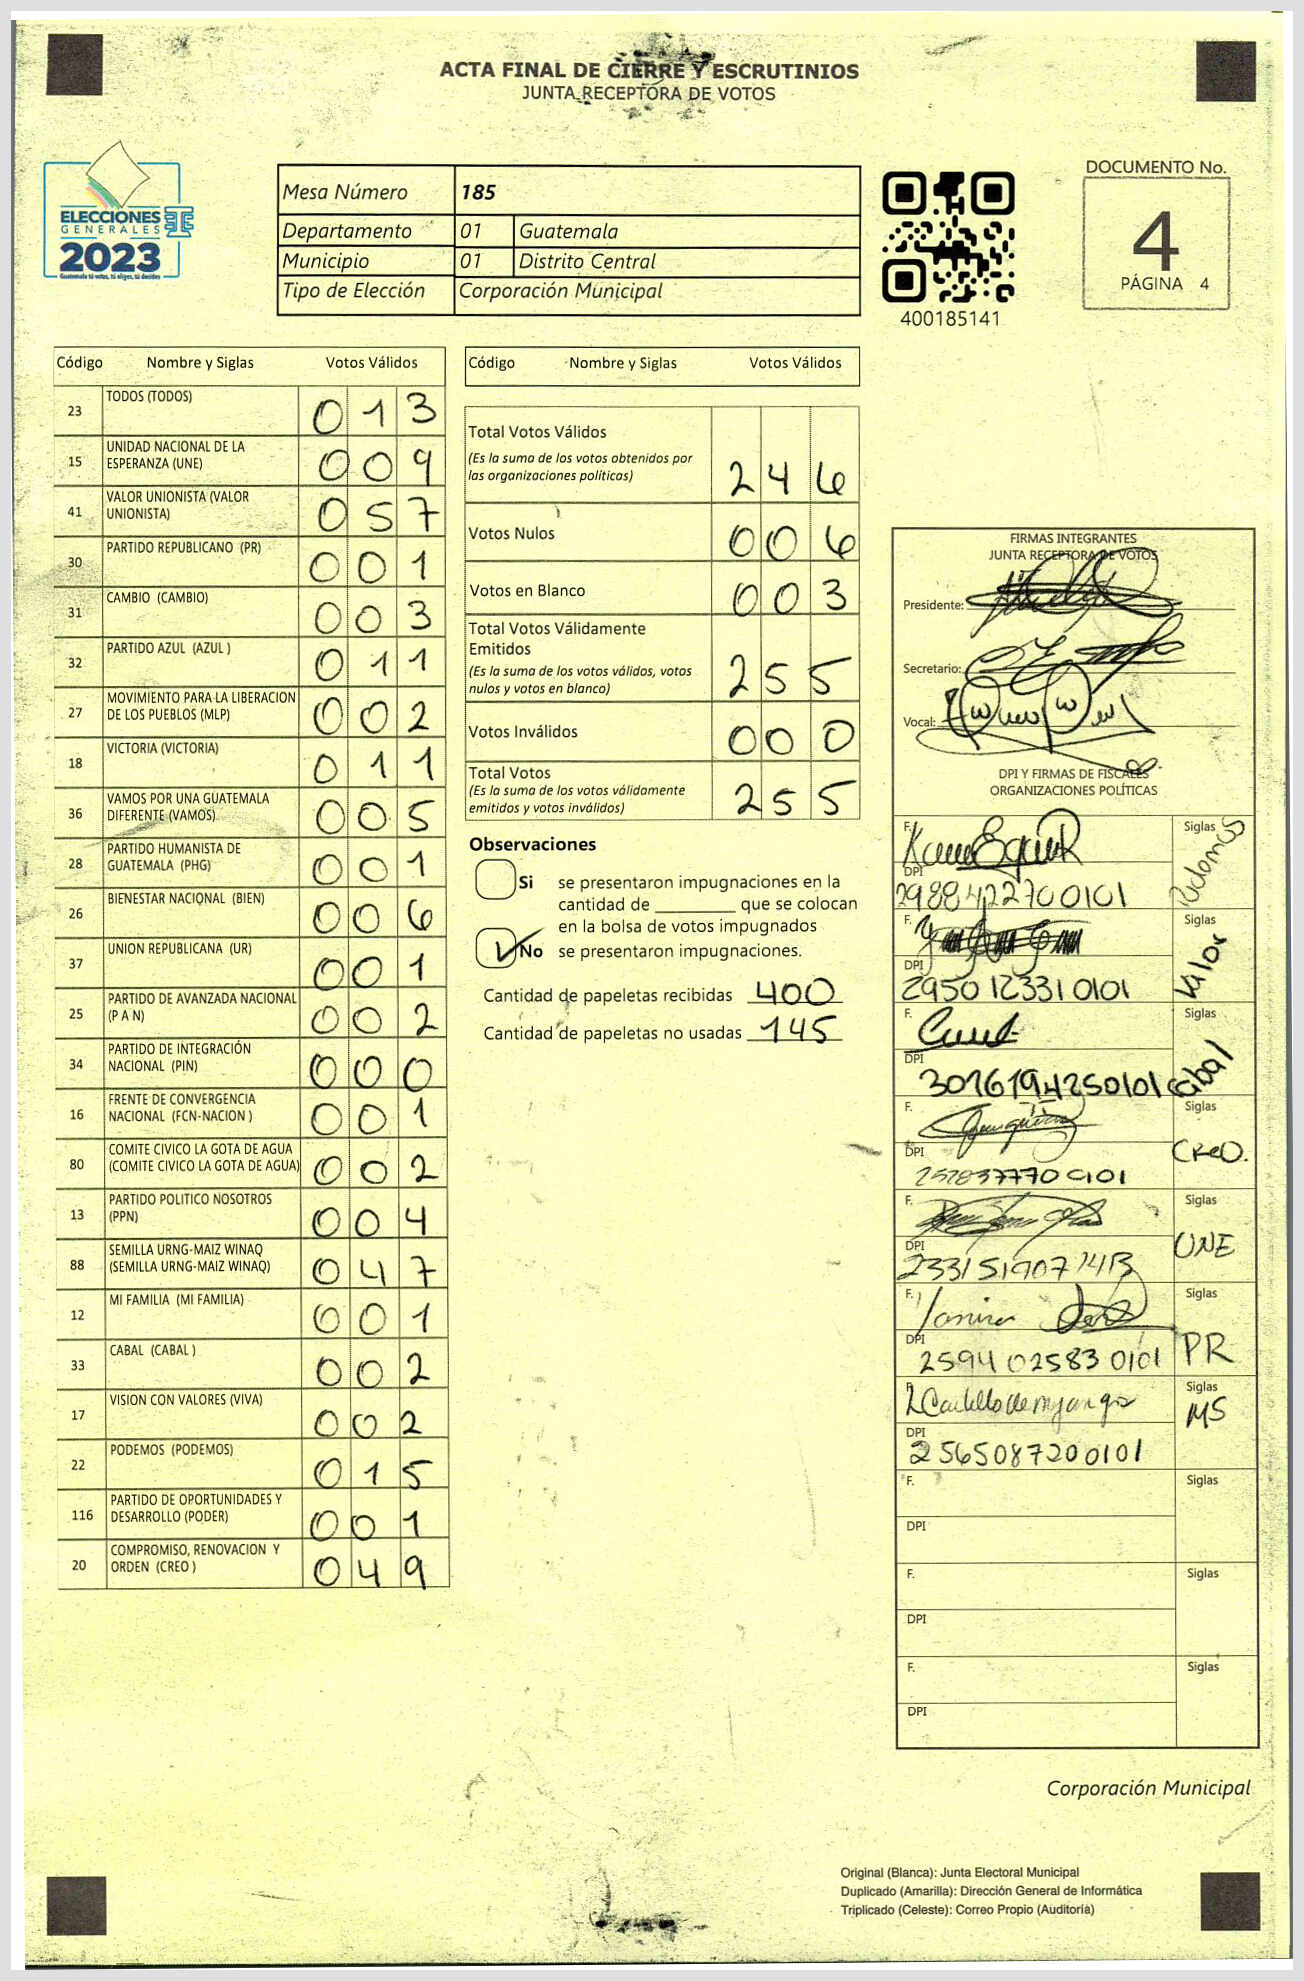 ACTA FINAL DE CIERRE Y ESCRUTINIOS
JUNTA RECEPTORA DE VOTOS
ELECCIONES
GENERALES
2023
Guatemala tú votas, tú eliges, tú decides
Mesa Número 185
Departamento 01 Guatemala
Municipio 01 Distrito Central
Tipo de Elección Corporación Municipal
400185141
DOCUMENTO No.
4
PÁGINA 4
Código Nombre y Siglas Votos Válidos
23 TODOS (TODOS) 0 1 3
15 UNIDAD NACIONAL DE LA
ESPERANZA (UNE) 0 0 9
41 VALOR UNIONISTA (VALOR
UNIONISTA) 0 5 7
30 PARTIDO REPUBLICANO (PR) 0 0 1
31 CAMBIO (CAMBIO) 0 0 3
32 PARTIDO AZUL (AZUL ) 0 1 1
27 MOVIMIENTO PARA LA LIBERACION
DE LOS PUEBLOS (MLP) 0 0 2
18 VICTORIA (VICTORIA) 0 1 1
36 VAMOS POR UNA GUATEMALA
DIFERENTE (VAMOS) 0 0 5
28 PARTIDO HUMANISTA DE
GUATEMALA (PHG) 0 0 1
26 BIENESTAR NACIONAL (BIEN) 0 0 6
37 UNION REPUBLICANA (UR) 0 0 1
25 PARTIDO DE AVANZADA NACIONAL
(P A N) 0 0 2
34 PARTIDO DE INTEGRACIÓN
NACIONAL (PIN) 0 0 0
16 FRENTE DE CONVERGENCIA
NACIONAL (FCN-NACION ) 0 0 1
80 COMITE CIVICO LA GOTA DE AGUA
(COMITE CIVICO LA GOTA DE AGUA) 0 0 2
13 PARTIDO POLITICO NOSOTROS
(PPN) 0 0 4
88 SEMILLA URNG-MAIZ WINAQ
(SEMILLA URNG-MAIZ WINAQ) 0 4 7
12 MI FAMILIA (MI FAMILIA) 0 0 1
33 CABAL (CABAL ) 0 0 2
17 VISION CON VALORES (VIVA) 0 0 2
22 PODEMOS (PODEMOS) 0 1 5
116 PARTIDO DE OPORTUNIDADES Y
DESARROLLO (PODER) 0 0 1
20 COMPROMISO, RENOVACION Y
ORDEN (CREO ) 0 4 9
Código Nombre y Siglas Votos Válidos
Total Votos Válidos
(Es la suma de los votos obtenidos por
las organizaciones políticas) 2 4 6
Votos Nulos 0 0 6
Votos en Blanco 0 0 3
Total Votos Válidamente
Emitidos
(Es la suma de los votos válidos, votos
nulos y votos en blanco) 2 5 5
Votos Inválidos 0 0 0
Total Votos
(Es la suma de los votos válidamente
emitidos y votos inválidos) 2 5 5
Observaciones
Si se presentaron impugnaciones en la
cantidad de ________ que se colocan
en la bolsa de votos impugnados
No se presentaron impugnaciones.
Cantidad de papeletas recibidas 400
Cantidad de papeletas no usadas 145
FIRMAS INTEGRANTES
JUNTA RECEPTORA DE VOTOS
Presidente:
Secretario:
Vocal:
DPI Y FIRMAS DE FISCALES
ORGANIZACIONES POLÍTICAS
F. Siglas Podemos
DPI 2988422700101
F. Siglas Valor
DPI 2950123310101
F. Siglas Cabal
DPI 3016194250101
F. Siglas CREO.
DPI
F. Siglas UNE
DPI
F. Siglas PR
DPI 2594025830101
F. Siglas MS
DPI 2565087200101
F. Siglas
DPI
F. Siglas
DPI
F. Siglas
DPI
Corporación Municipal
Original (Blanca): Junta Electoral Municipal
Duplicado (Amarilla): Dirección General de Informática
Triplicado (Celeste): Correo Propio (Auditoría)